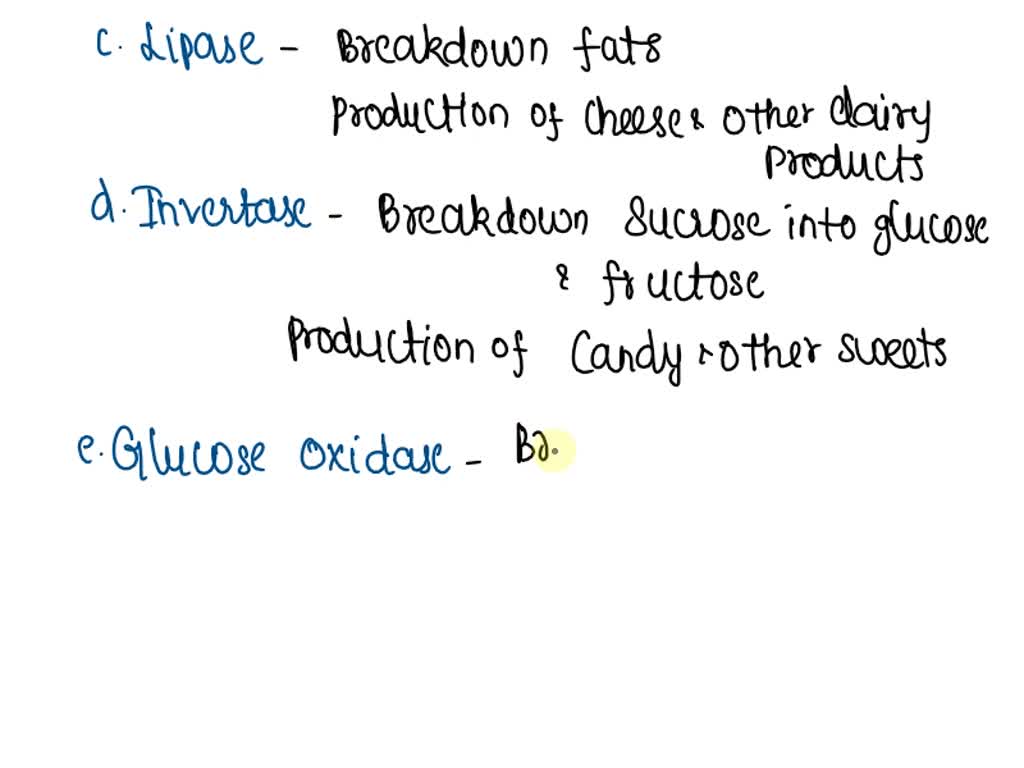 c. Lipase - Breakdown fats
Production of cheese & other dairy
Products
d. Invertase - Breakdown sucrose into glucose
& fructose
Production of Candy & other sweets
e. Glucose oxidase -